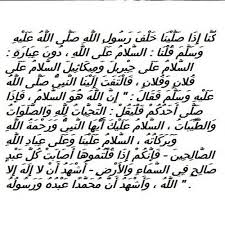 كُنَّا إِذَا صَلَّيْنَا خَلْفَ رَسُولِ اللَّهِ صَلَّى اللَّهُ عَلَيْهِ
وَسَلَّمَ قُلْنَا : السَّلَامُ عَلَى اللَّهِ ، دُونَ عِبَارَةِ :
السَّلَامُ عَلَى جِبْرِيلَ وَمِيكَائِيلَ السَّلَامُ عَلَى
فُلَانٍ وَفُلَانٍ ، فَالْتَفَتَ إِلَيْنَا النَّبِيُّ صَلَّى اللَّهُ
عَلَيْهِ وَسَلَّمَ فَقَالَ : " إِنَّ اللَّهَ هُوَ السَّلَامُ ، فَإِذَا
صَلَّى أَحَدُكُمْ فَلْيَقُلْ : التَّحِيَّاتُ لِلَّهِ وَالصَّلَوَاتُ
وَالطَّيِّبَاتُ ، السَّلَامُ عَلَيْكَ أَيُّهَا النَّبِيُّ وَرَحْمَةُ اللَّهِ
وَبَرَكَاتُهُ ، السَّلَامُ عَلَيْنَا وَعَلَى عِبَادِ اللَّهِ
الصَّالِحِينَ - فَإِنَّكُمْ إِذَا قُلْتُمُوهَا أَصَابَتْ كُلَّ عَبْدٍ
صَالِحٍ فِي السَّمَاءِ وَالْأَرْضِ - أَشْهَدُ أَنْ لَا إِلَهَ إِلَّا
اللَّهُ ، وَأَشْهَدُ أَنَّ مُحَمَّدًا عَبْدُهُ وَرَسُولُهُ " .